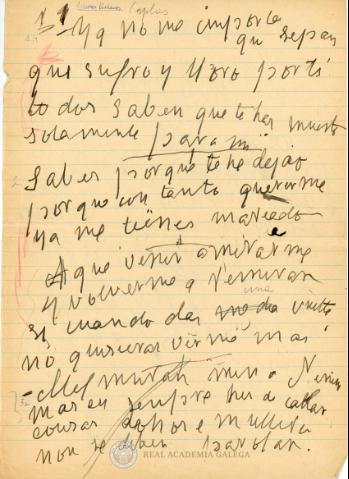 Coplas
1ª Ya no me importa
que sepan
que sufro y lloro por ti
todos saben que te has muerto
solamente para mi
Sabes porque te he dejao
porque con tanto quererme
ya me tienes mareado
A que venir a mirarme
y volverme a remirar
una
si cuando das vuelta
no quisieras verme mas
mas en sempre hei de calar
cousas de home e muller
non se deben parolar.
REAL ACADEMIA GALEGA